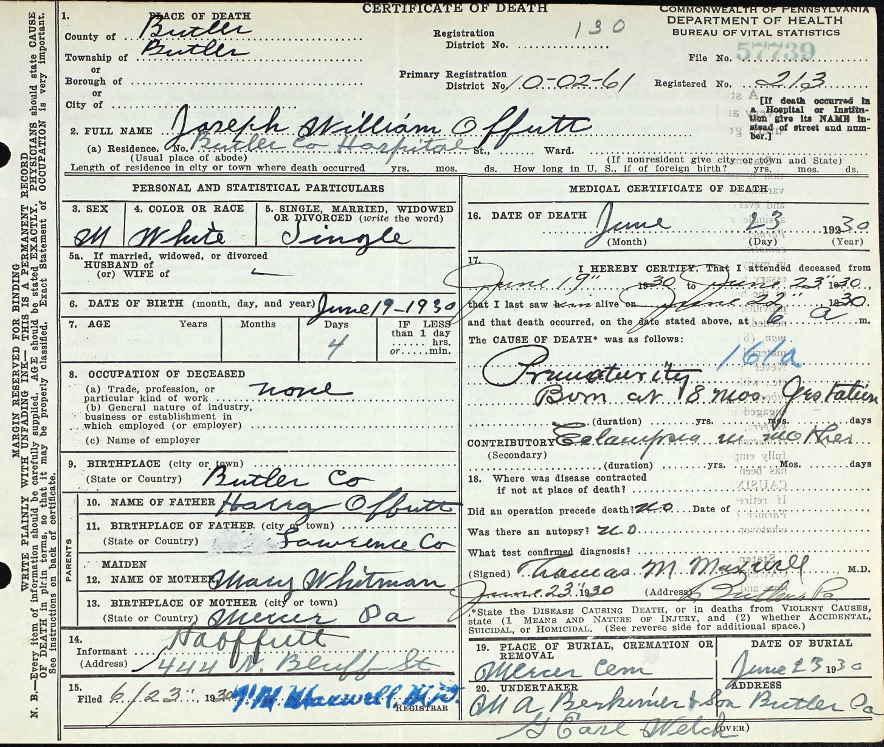 CERTIFICATE OF DEATH
COMMONWEALTH OF PENNSYLVANIA
DEPARTMENT OF HEALTH
BUREAU OF VITAL STATISTICS
1. PLACE OF DEATH
County of Butler
Township of Butler
or
Borough of
or
City of
Registration District No. 130
Primary Registration District No. 10-02-61
File No. 57739
Registered No. 213
[If death occurred in a Hospital or Institution give its NAME instead of street and number.]
2. FULL NAME Joseph William Offutt
(a) Residence, No. Butler Co Hospital St., Ward.
(Usual place of abode) (If nonresident give city or town and State)
Length of residence in city or town where death occurred yrs. mos. ds. How long in U. S., if of foreign birth? yrs. mos. ds.
PERSONAL AND STATISTICAL PARTICULARS
3. SEX M
4. COLOR OR RACE White
5. SINGLE, MARRIED, WIDOWED OR DIVORCED (write the word) Single
5a. If married, widowed, or divorced
HUSBAND of
(or) WIFE of
6. DATE OF BIRTH (month, day, and year) June 19-1930
7. AGE Years Months Days 4 IF LESS than 1 day
hrs.
or min.
8. OCCUPATION OF DECEASED
(a) Trade, profession, or particular kind of work none
(b) General nature of industry, business or establishment in which employed (or employer)
(c) Name of employer
9. BIRTHPLACE (city or town)
(State or Country) Butler Co
PARENTS
10. NAME OF FATHER Harry Offutt
11. BIRTHPLACE OF FATHER (city or town)
(State or Country) Lawrence Co
MAIDEN
12. NAME OF MOTHER Mary Whitman
13. BIRTHPLACE OF MOTHER (city or town)
(State or Country) Mercer Pa
14.
Informant H Offutt
(Address) 444 N. Bluff St
15.
Filed 6/23 1930 Maxwell, M.D.
REGISTRAR
MEDICAL CERTIFICATE OF DEATH
16. DATE OF DEATH June 23 1930
(Month) (Day) (Year)
17. I HEREBY CERTIFY, That I attended deceased from
June 19" 1930 to June 23" 1930
that I last saw him alive on June 22" 1930
and that death occurred, on the date stated above, at 6 a m.
The CAUSE OF DEATH* was as follows:
161a
Prematurity
Born at 8 mos. Gestation
(duration) yrs. mos. days
CONTRIBUTORY Eclampsia in mother
(Secondary)
(duration) yrs. Mos. days
18. Where was disease contracted
if not at place of death?
Did an operation precede death? no Date of
Was there an autopsy? no
What test confirmed diagnosis?
(Signed) Thomas M. Maxwell M.D.
June 23" 1930 (Address) Butler Pa
*State the DISEASE CAUSING DEATH, or in deaths from VIOLENT CAUSES, state (1 MEANS AND NATURE OF INJURY, and (2) whether ACCIDENTAL, SUICIDAL, or HOMICIDAL. (See reverse side for additional space.)
19. PLACE OF BURIAL, CREMATION OR REMOVAL Mercer Cem
DATE OF BURIAL June 23 1930
20. UNDERTAKER M A Berkimer & Son
ADDRESS Butler Pa
G Earl Welch
(OVER)
MARGIN RESERVED FOR BINDING
WRITE PLAINLY WITH UNFADING INK—THIS IS A PERMANENT RECORD
N. B.—Every item of information should be carefully supplied. AGE should be stated EXACTLY. PHYSICIANS should state CAUSE
OF DEATH in plain terms, so that it may be properly classified. Exact Statement of OCCUPATION is very important.
See instructions on back of certificate.